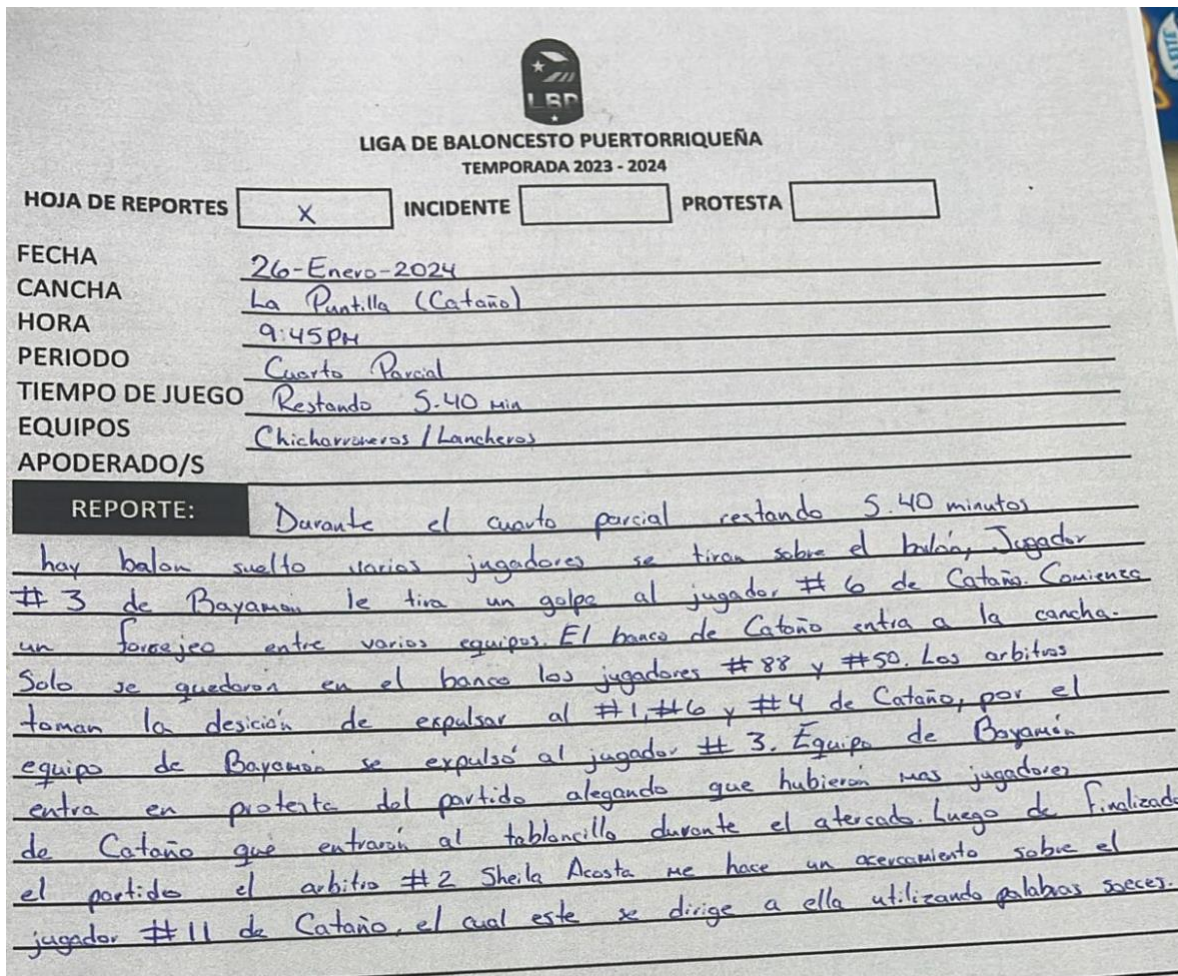 LBP
LIGA DE BALONCESTO PUERTORRIQUEÑA
TEMPORADA 2023 - 2024
HOJA DE REPORTES X INCIDENTE PROTESTA
FECHA 26-Enero-2024
CANCHA La Puntilla (Cataño)
HORA 9:45PM
PERIODO Cuarto Parcial
TIEMPO DE JUEGO Restando 5.40 Min
EQUIPOS Chicharroneros / Lancheros
APODERADO/S
REPORTE: Durante el cuarto parcial restando 5.40 minutos
hay balon suelto varios jugadores se tiran sobre el balón, Jugador
# 3 de Bayamon le tira un golpe al jugador # 6 de Cataño. Comienza
un forcejeo entre varios equipos. El banco de Cataño entra a la cancha.
Solo se quedaron en el banco los jugadores #88 y #50. Los arbitros
toman la desición de expulsar al #1, #6 y #4 de Cataño, por el
equipo de Bayamón se expulsó al jugador # 3. Equipo de Bayamón
entra en protesta del partido alegando que hubierón mas jugadores
de Cataño que entrarón al tabloncillo durante el atercado. Luego de finalizado
el partido el arbitro #2 Sheila Acosta me hace un acercamiento sobre el
jugador #11 de Cataño, el cual este se dirige a ella utilizando palabras soeces.